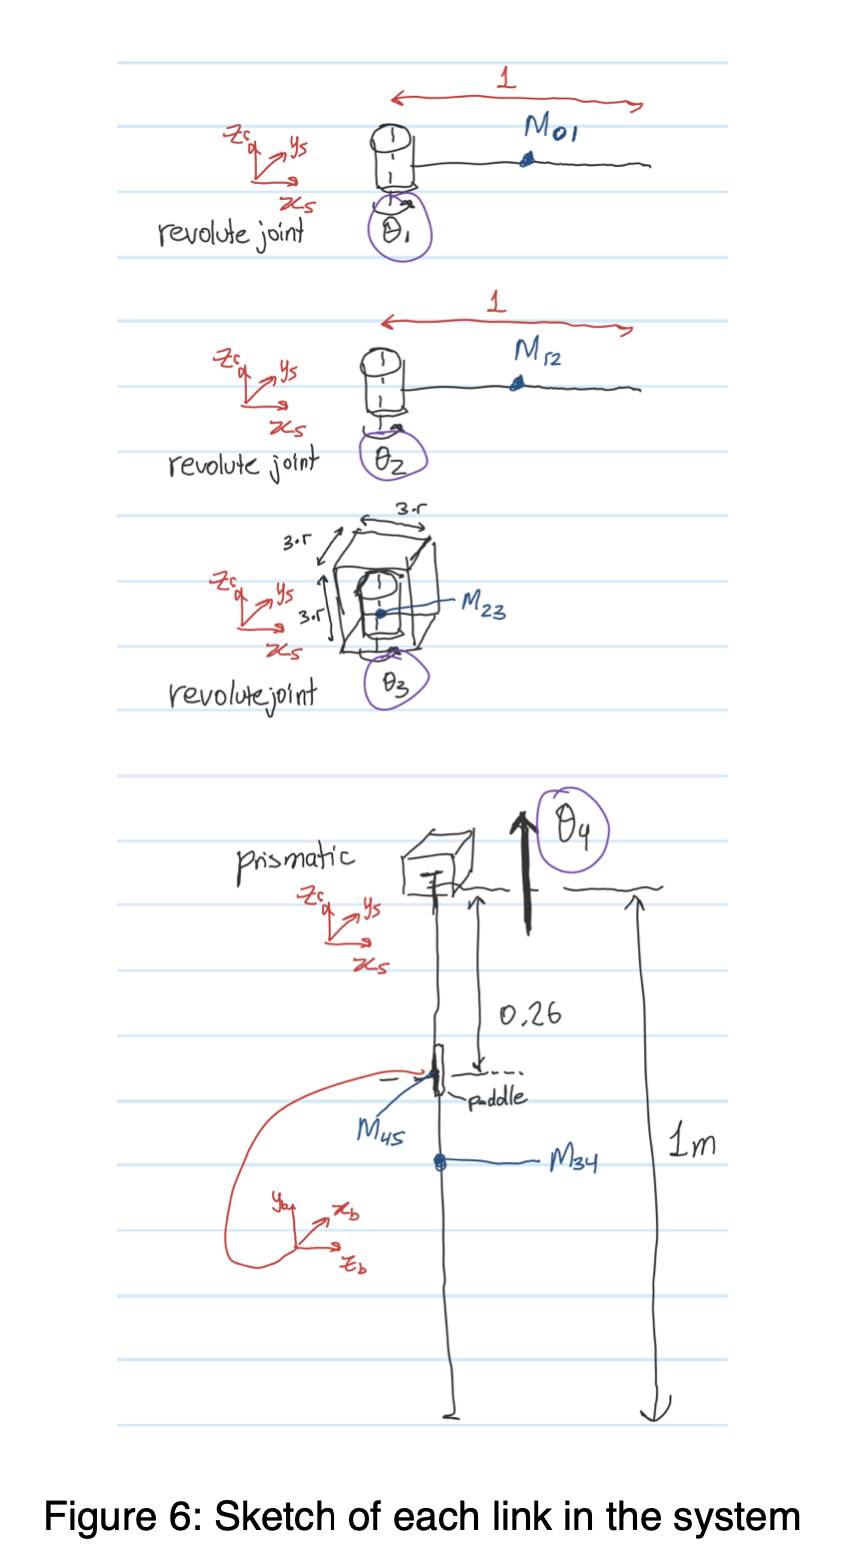 1
M01
Zs
ys
xs
revolute joint
θ1
1
M12
Zs
ys
xs
revolute joint
θ2
3·r
3·r
3·r
Zs
ys
xs
M23
revolute joint
θ3
θ4
prismatic
Zs
ys
xs
0.26
paddle
M45
1m
M34
yb
xb
zb
Figure 6: Sketch of each link in the system